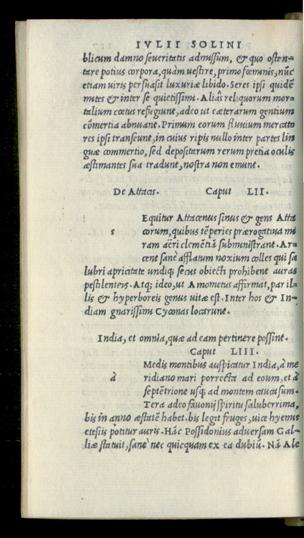 IVLII SOLINI
blicum damno seueritatis admissum, & quo osten-
tare potius corpora, quàm uestire, primo fœminis, nūc
etiam uiris persuasit luxuriæ libido. Seres ipsi quidē
mites & inter se quietissimi. Aliâs reliquorum mor-
talium cœtus refugiunt, adeo ut cæterarum gentium
cōmertia abnuant. Primum eorum fluuium mercato
res ipsi transeunt, in cuius ripis nullo inter partes lin
guæ commertio, sed depositarum rerum pretia oculis
æstimantes sua tradunt, nostra non emunt.
De Attacis. Caput LII.
Equitur Attacenus sinus & gens Attà
s corum, quibus tēperies prærogatiua mi
ram aëri clemētiā subministrant. Ar-
cent sanè afflatum noxium colles qui sa
lubri apricitate undiq; secus obiecti prohibent auras
pestilentes. Atq; ideo, ut Amometus affirmat, par il-
lis & hyperboreis genus uitæ est. Inter hos & In-
diam gnarissimi Cyconas locarunt.
India, et omnia, quæ ad eam pertinere possint.
Caput LIII.
Medis montibus auspicatur India, à me
à ridiano mari porrecta ad eoum, et à
septētrione usq; ad montem caucasum.
Tera adeo fauonij spiritu saluberrima,
bis in anno æstatē habet. bis legit fruges, uice hyemis
etesiis potitur auris. Hāc Possidonius aduersam Gal-
liæ statuit, sanè nec quicquam ex ea dubiū. Nā Ale